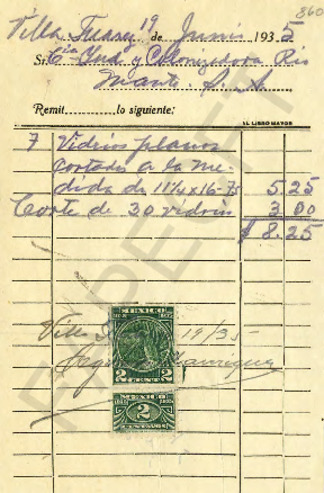 860
Villa Juarez 19 de Junio 1935
Sr. Cia Ind. y Colonizadora Rio
Mante. S. A.
Remit. lo siguiente:
"EL LIBRO MAYOR"
7 Vidrios planos
cortados a la me-
dida de 11¼ x 16-75 5.25
Corte de 30 vidrios 3 00
$ 8.25
MEXICO
Villa 19/35
2 2
CENTAVOS
Manrique
MEXICO
2
FAPECFT